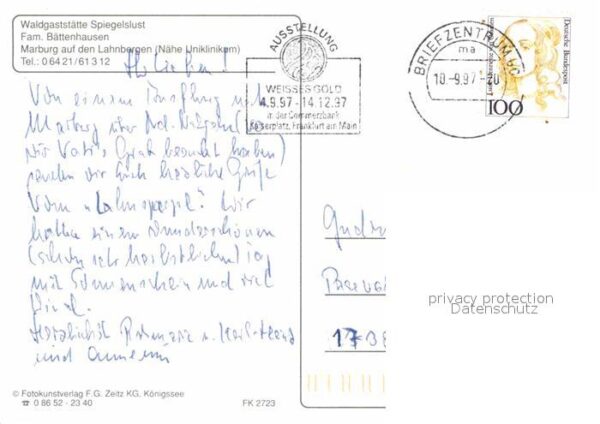 Waldgaststätte Spiegelslust
Fam. Bättenhausen
Marburg auf den Lahnbergen (Nähe Uniklinikum)
Tel.: 0 64 21 / 61 3 12
Ihr Lieben!
Von einem Ausflug nach
Marburg über
wir Vati's Grab besucht haben)
senden wir Euch herzliche Grüße
vom Wir
hatten einen wunderschönen
(schon sehr herbstlichen) Tag
mit Sonnenschein und viel
Wind.
Herzlichst u.
und
© Fotokunstverlag F.G. Zeitz KG, Königssee
☎ 0 86 52 - 23 40
FK 2723
AUSSTELLUNG
WEISSES GOLD
4.9.97 - 14.12.97
in der Commerzbank
Kaiserplatz, Frankfurt am Main
BRIEFZENTRUM 60
ma
10.-9.97.-20
Deutsche Bundespost
100
17
privacy protection
Datenschutz